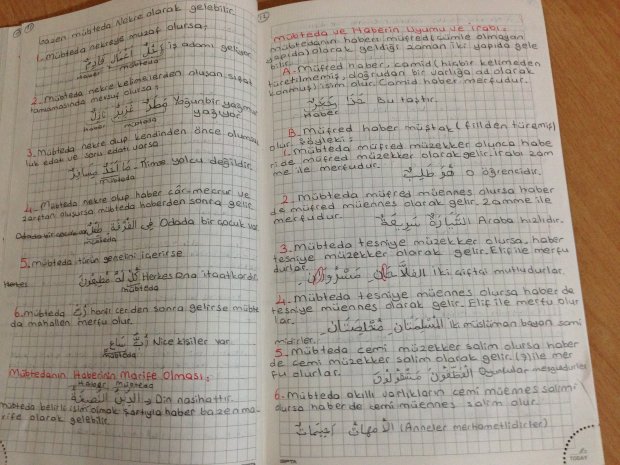 bazen mübteda Nekre olarak gelebilir.
1. mübteda nekreye muzaf olursa;
رَجُلُ أَعْمَالٍ قَادِمٌ iş adamı geliyor
Haber mübteda
2. mübteda nekre kelimelerden oluşan sıfat
tamlamasında mevsuf olursa;
مَطَرٌ غَزِيرٌ نَازِلٌ Yoğun bir yağmur
haber mübteda yağıyor
3. mübteda nekre olup kendinden önce olumsuz
luk edatı ve soru edatı varsa
مَا أَحَدٌ مُسَافِرٌ - Kimse yolcu değildir.
mübteda
4. Mübteda nekre olup haber câr-mecrur ve
zarftan oluşursa mübteda haberden sonra gelir.
فِي الْغُرْفَةِ طِفْلٌ Odada bir çocuk var
mübteda
5. mübteda türün genelini içerirse
Herkes كُلٌّ لَهُ مُطِيعُونَ Herkes ona itaatkardır.
mübteda
6. mübteda رُبَّ harfi cerden sonra gelirse mübte
da mahallen merfu olur.
رُبَّ سَاعٍ Nice kişiler var
mübteda
Mübtedanın Haberinin Marife Olması;
Haber Mübteda
الدِّينُ النَّصِيحَةُ Din nasihattır.
mübteda belirli isim olmak şartıyla haber bazen ma-
rife olarak gelebilir.
mübteda ve Haberin Uyumu ve İrabı:
mübtedanın haberi müfred (cümle olmayan
yapıda) olarak geldiği zaman iki yapıda gele
bilir.
A. Müfred haber, camid (hiçbir kelimeden
türetilmemiş, doğrudan bir varlığa ad olarak
konmuş) isim olur. Camid haber merfudur.
هَذَا حَجَرٌ Bu taştır.
Haber
B. müfred haber müştak (fiilden türemiş)
olur. Şöyleki:
1. mübteda müfred müzekker olunca habe
ri de müfred müzekker olarak gelir. İrabı zam
me ile merfudur. هُوَ طَالِبٌ O öğrencidir.
2. mübteda müfred müennes olursa haber
de müfred müennes olarak gelir. Zamme ile
merfudur. السَّيَّارَةُ سَرِيعَةٌ Araba hızlıdır.
3. mübteda tesniye müzekker olursa, haber
tesniye müzekker olarak gelir. Elif ile merfu
durlar. الْفَلاَّحَانِ مَسْرُورَانِ İki çiftçi mutludurlar.
4. mübteda tesniye müennes olursa haber de
tesniye müennes olarak gelir. Elif ile merfu olur
lar. الْمُسْلِمَتَانِ مُخْلِصَتَانِ İki müslüman bayan sami
midirler.
5. Mübteda cemi müzekker salim olursa haber
de cemi müzekker salim olarak gelir. (و) ile mer
fu olurlar. مَشْغُولُونَ meşguldürler
6. Mübteda akıllı varlıkların cemi müennes salimi
olursa haber de cemi müennes salim olur.
الْأُمَّهَاتُ رَحِيمَاتٌ (Anneler merhametlidirler)
TODAY